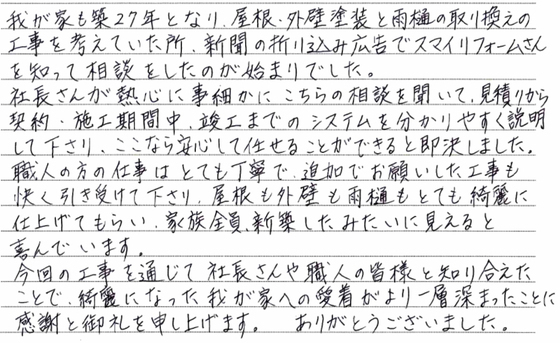 我が家も築27年となり、屋根・外壁塗装と雨樋の取り換えの
工事を考えていた所、新聞の折り込み広告でスマイリフォームさん
を知って相談をしたのが始まりでした。
社長さんが熱心に事細かにこちらの相談を聞いて、見積りから
契約・施工期間中、竣工までのシステムを分かりやすく説明
して下さり、ここなら安心して任せることができると即決しました。
職人の方の仕事はとても丁寧で、追加でお願いした工事も
快く引き受けて下さり、屋根も外壁も雨樋もとても綺麗に
仕上げてもらい、家族全員、新築したみたいに見えると
喜んでいます。
今回の工事を通じて社長さんや職人の皆様と知り合えた
ことで、綺麗になった我が家への愛着がより一層深まったことに
感謝と御礼を申し上げます。 ありがとうございました。